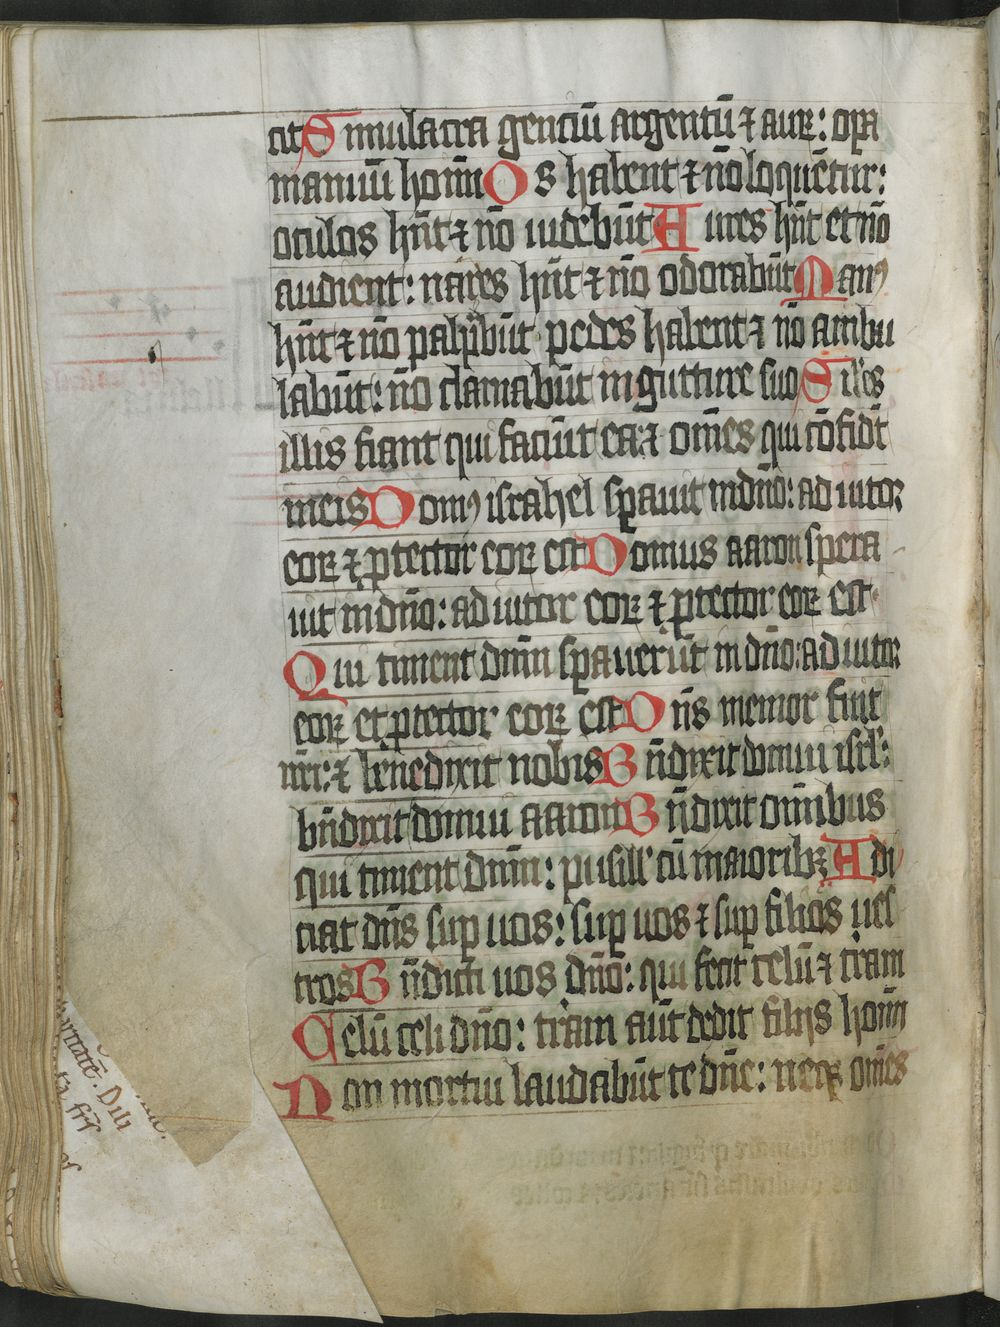 cit Simulacra genciū argentū ⁊ auꝝ: oꝑa
manuū hom̄i Os habent ⁊ nō loquētur:
oculos hn̄t ⁊ nō uidebūt Aures hn̄t et nō
audient: nares hn̄t ⁊ nō odorabūt Manꝰ
hn̄t ⁊ nō palpabūt pedes habent ⁊ nō ambu
labūt: nō clamabūt in gutture suo Siles
illis fiant qui faciūt ea: ⁊ om̄es qui cōfidūt
in eis Domꝰ israhel sꝑauit in dn̄o: adiutor
eoꝝ ⁊ ꝓtector eoꝝ est Domus aaron spera
uit in dn̄o: adiutor eoꝝ ⁊ ꝓtector eoꝝ est
Qui timent dn̄m sꝑauerūt in dn̄o: adiutor
eoꝝ et ꝓtector eoꝝ est Dn̄s memor fuit
nr̄i: ⁊ benedixit nobis Bn̄dixit domui isrl:
bn̄dixit domui aaron Bn̄dixit om̄ibus
qui timent dn̄m: pusill' cū maioribꝫ Adi
ciat dn̄s suꝑ uos: suꝑ uos ⁊ suꝑ filios ues
tros Bn̄dicti uos dn̄o: qui fecit celū ⁊ tr̄am
Celū celi dn̄o: tr̄am aūt dedit filijs hom̄i
Non mortui laudabūt te dn̄e: neqꝫ om̄es
Dili
frs̄